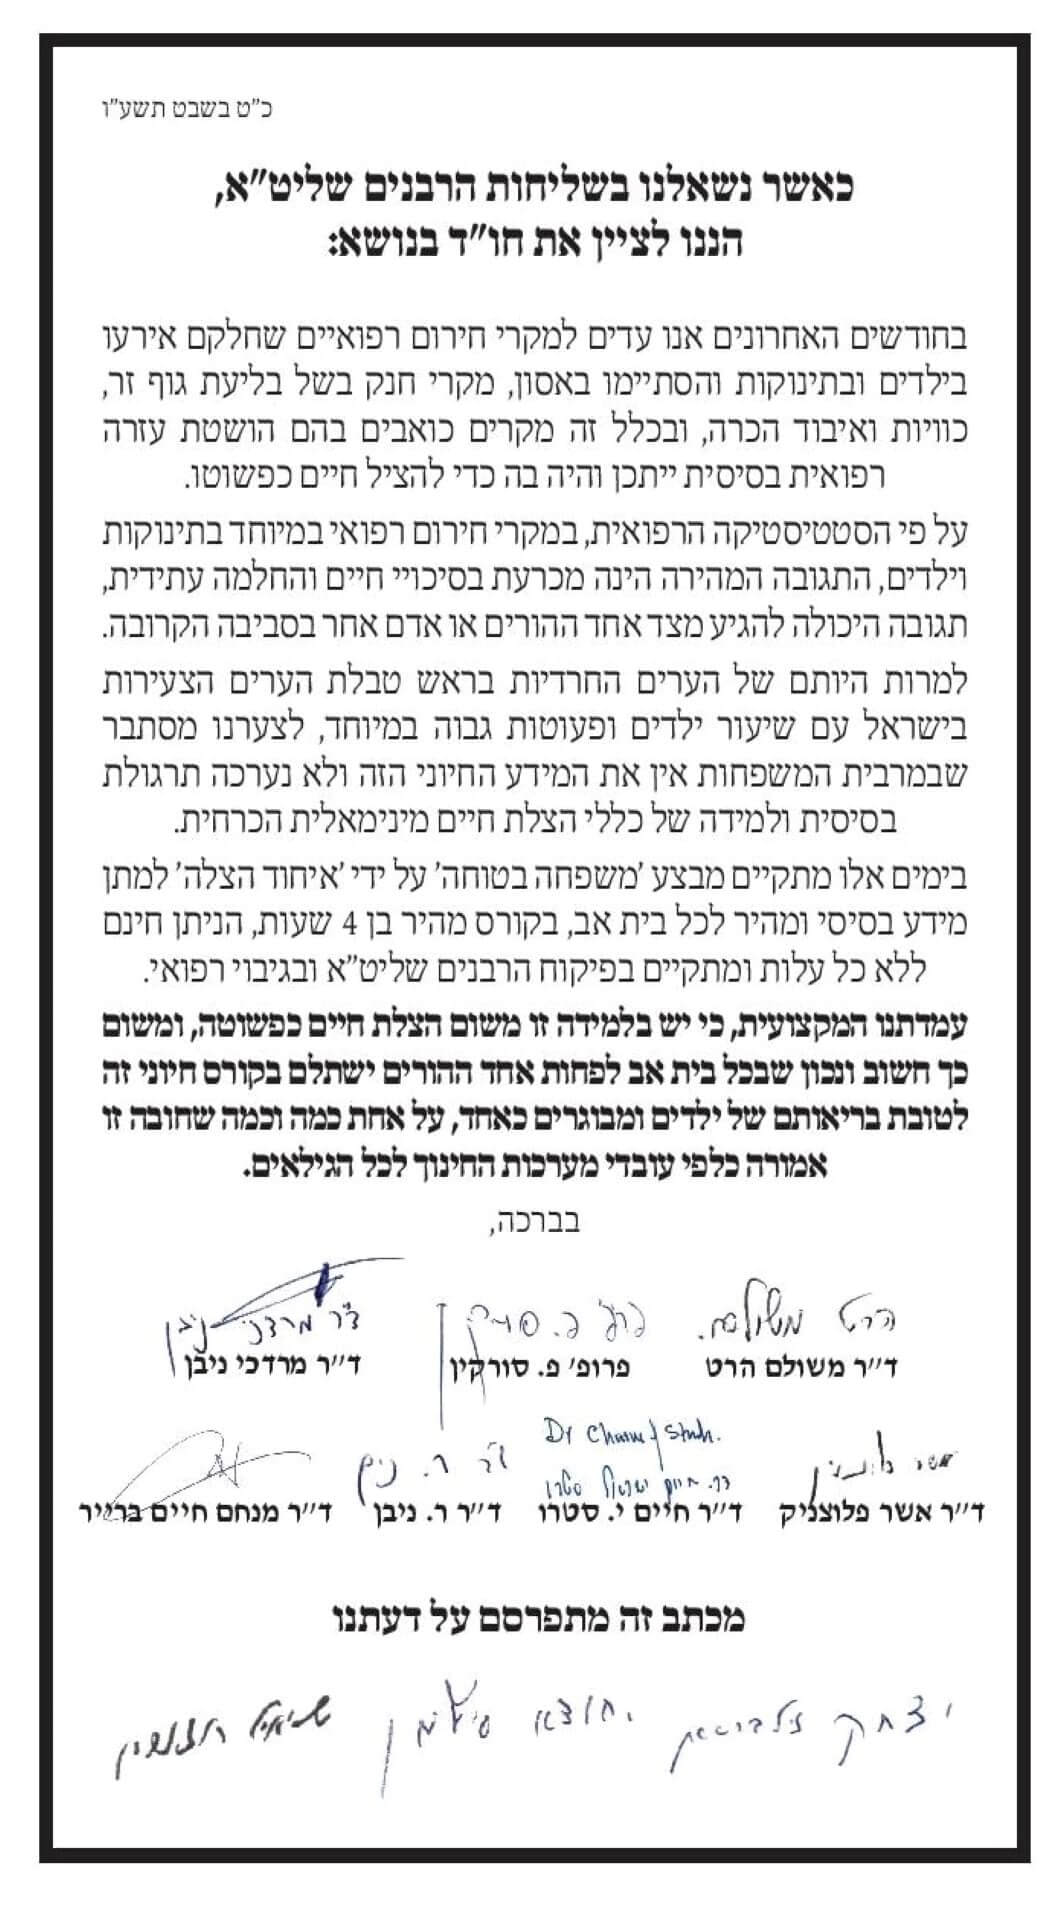 כ"ט בשבט תשע"ו
כאשר נשאלנו בשליחות הרבנים שליט"א,
הננו לציין את חו"ד בנושא:
בחודשים האחרונים אנו עדים למקרי חירום רפואיים שחלקם אירעו
בילדים ובתינוקות והסתיימו באסון, מקרי חנק בשל בליעת גוף זר,
כוויות ואיבוד הכרה, ובכלל זה מקרים כואבים בהם הושטת עזרה
רפואית בסיסית ייתכן והיה בה כדי להציל חיים כפשוטו.
על פי הסטטיסטיקה הרפואית, במקרי חירום רפואי במיוחד בתינוקות
וילדים, התגובה המהירה הינה מכרעת בסיכויי חיים והחלמה עתידית,
תגובה היכולה להגיע מצד אחד ההורים או אדם אחר בסביבה הקרובה.
למרות היותם של הערים החרדיות בראש טבלת הערים הצעירות
בישראל עם שיעור ילדים ופעוטות גבוה במיוחד, לצערנו מסתבר
שבמרבית המשפחות אין את המידע החיוני הזה ולא נערכה תרגולת
בסיסית ולמידה של כללי הצלת חיים מינימאלית הכרחית.
בימים אלו מתקיים מבצע 'משפחה בטוחה' על ידי 'איחוד הצלה' למתן
מידע בסיסי ומהיר לכל בית אב, בקורס מהיר בן 4 שעות, הניתן חינם
ללא כל עלות ומתקיים בפיקוח הרבנים שליט"א ובגיבוי רפואי.
עמדתנו המקצועית, כי יש בלמידה זו משום הצלת חיים כפשוטה, ומשום
כך חשוב ונכון שבכל בית אב לפחות אחד ההורים ישתלם בקורס חיוני זה
לטובת בריאותם של ילדים ומבוגרים כאחד, על אחת כמה וכמה שחובה זו
אמורה כלפי עובדי מערכות החינוך לכל הגילאים.
בברכה,
הרט משולם. פרופ' פ. סורקין ד"ר מרדכי ניבן
ד"ר משולם הרט פרופ' פ. סורקין ד"ר מרדכי ניבן
Dr Chaim
ד"ר ר. ניבן
דר. חיים ישראל סטרו
ד"ר אשר פלוצניק ד"ר חיים י. סטרו ד"ר ר. ניבן ד"ר מנחם חיים ברייר
מכתב זה מתפרסם על דעתנו
יצחק זילברשטיין